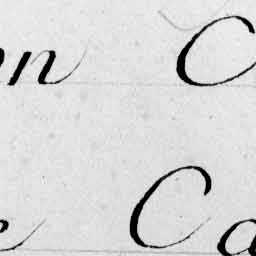 n C
e Ca